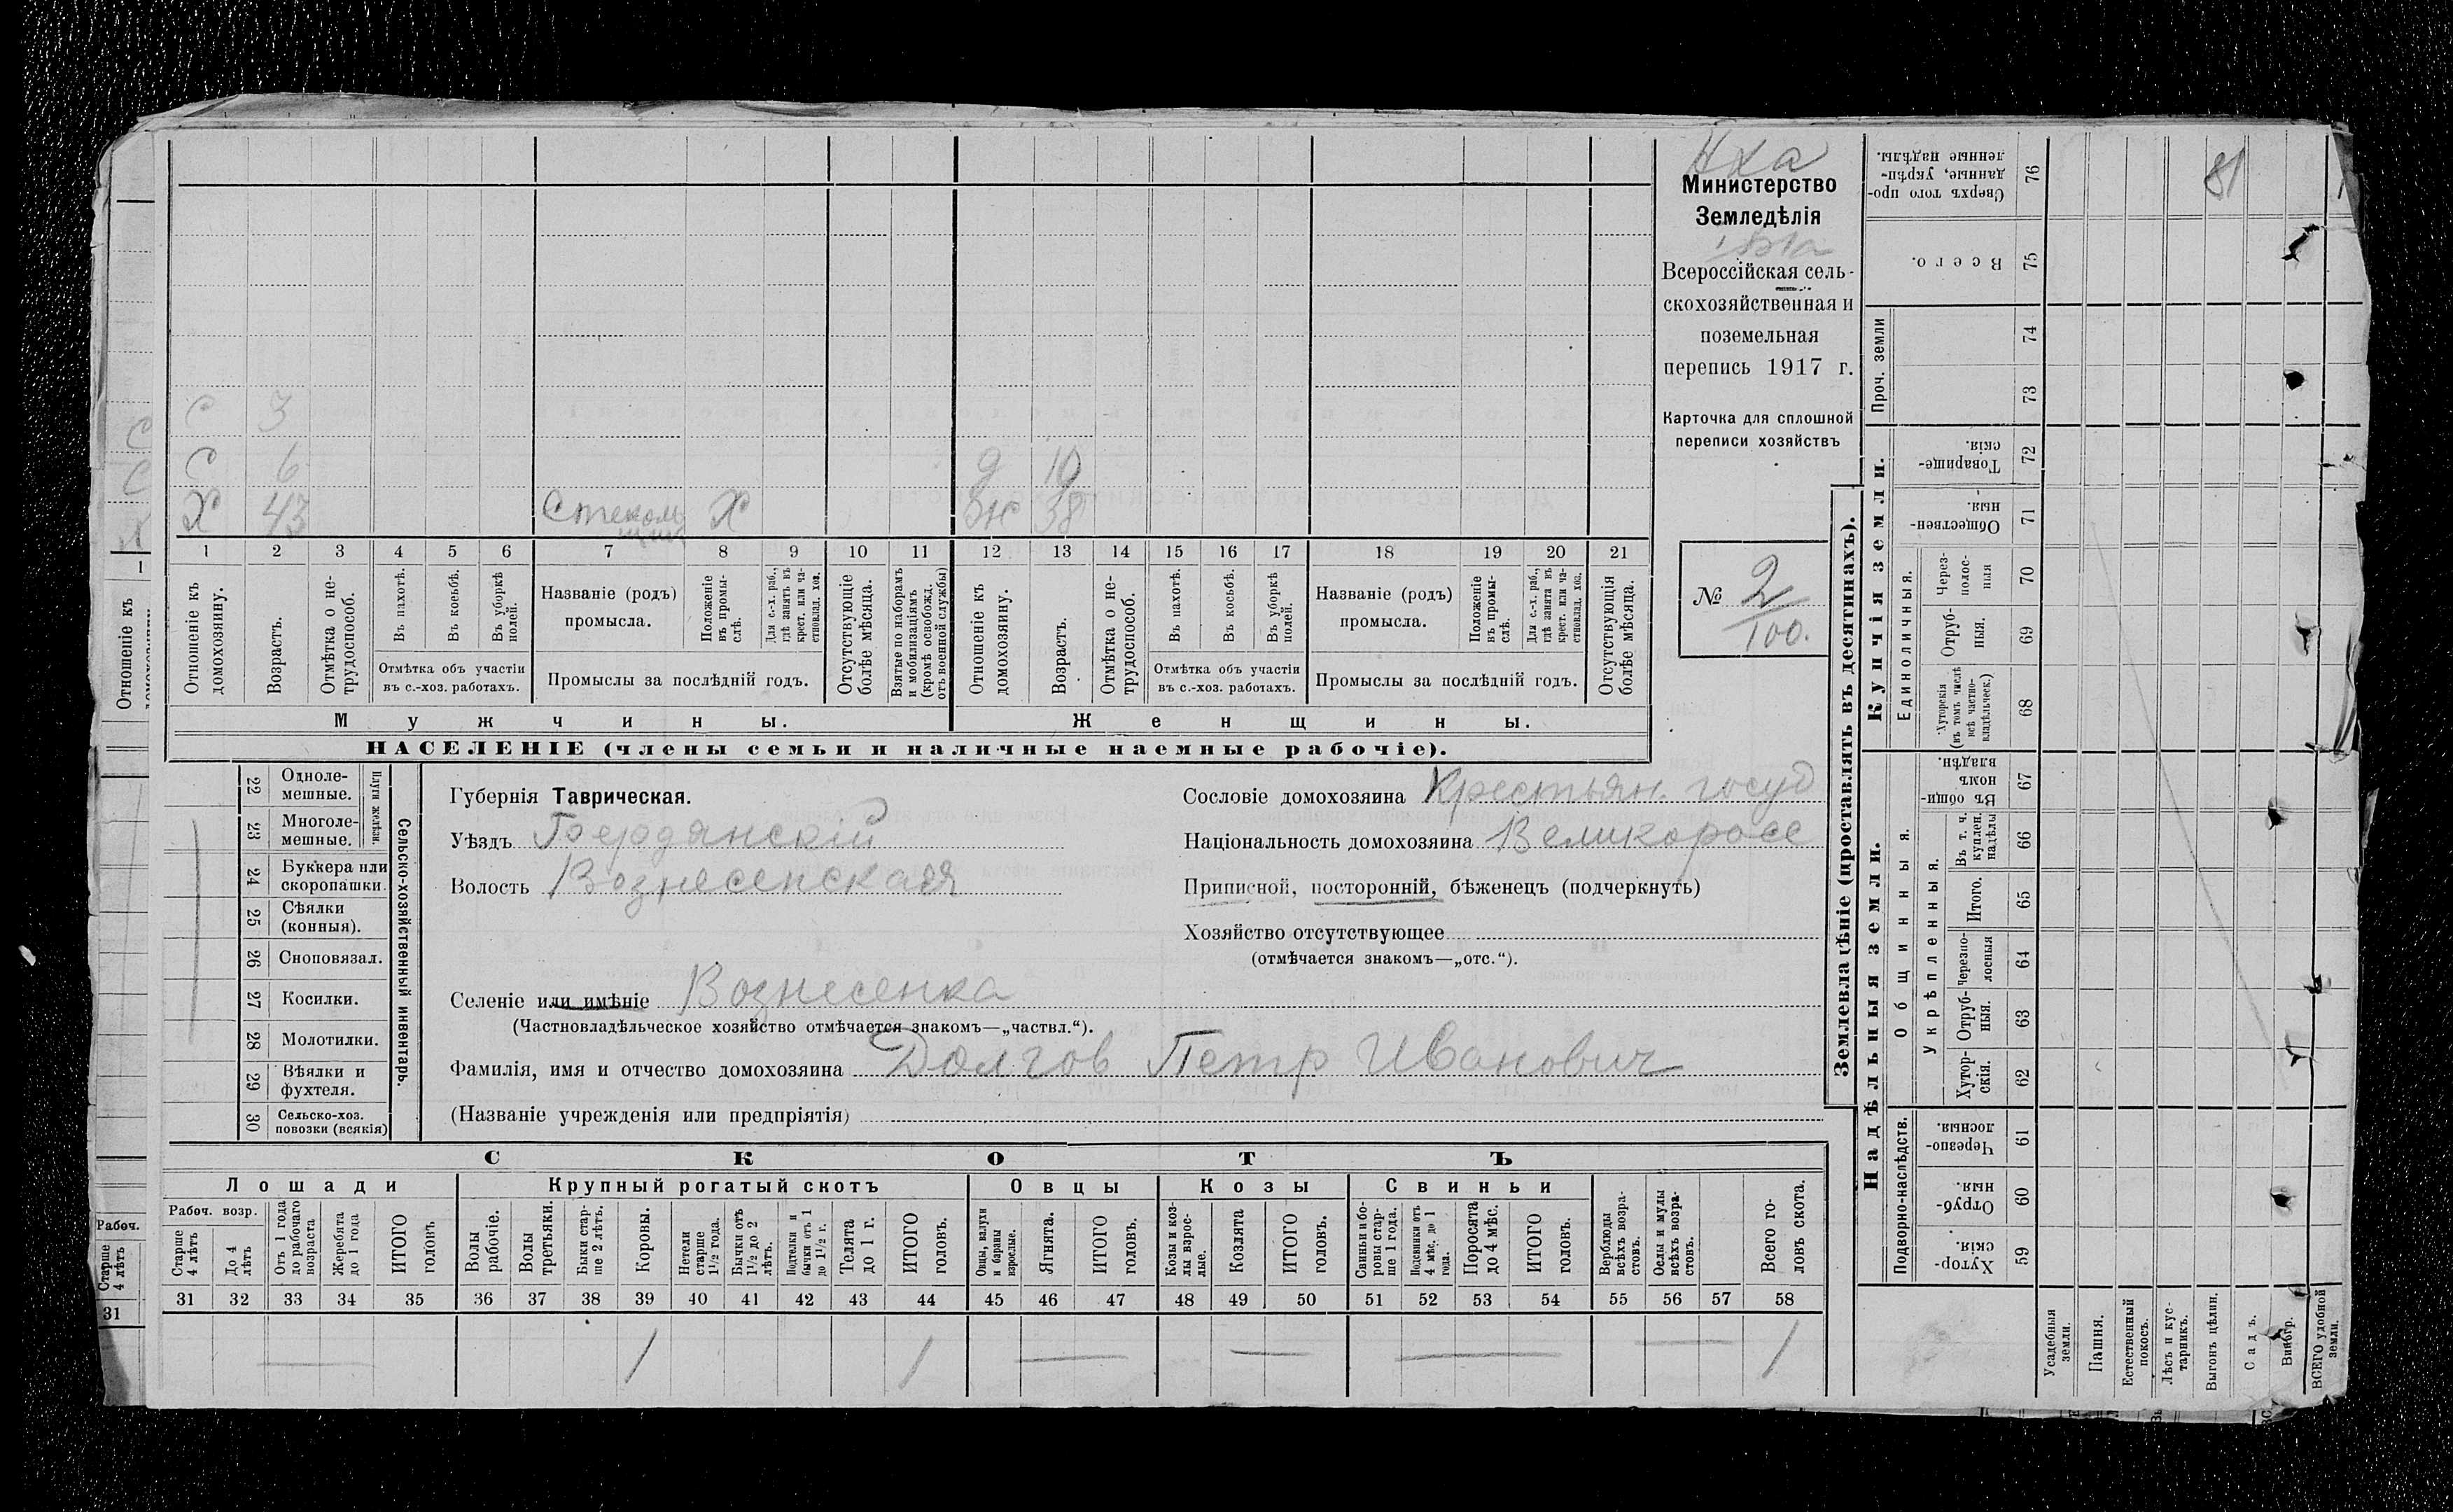 Нха
Министерство
Земледѣлія
Всероссійская сель-
скохозяйственная и
поземельная
перепись 1917 г.
Карточка для сплошной
переписи хозяйствъ
№ 2/100.
С 3
С 6 д 10
Х 43 Х Жн 38
1 2 3 4 5 6 7 8 9 10 11 12 13 14 15 16 17 18 19 20 21
Отношеніе къ домохозяину.
Возрастъ.
Отмѣтка о не-трудоспособ.
Въ пахотѣ.
Въ косьбѣ.
Въ уборкѣ полей.
Отмѣтка объ участіи въ с.-хоз. работахъ.
Названіе (родъ) промысла.
Положеніе въ промы-слѣ.
Для с.-х. раб., гдѣ занятъ въ крест. или ча-стновлад. хоз.
Промыслы за послѣдній годъ.
Отсутствующіе болѣе мѣсяца.
Взятые по наборамъ и мобилизаціямъ (кромѣ освобожд. отъ военной службы)
Отношеніе къ домохозяину.
Возрастъ.
Отмѣтка о не-трудоспособ.
Въ пахотѣ.
Въ косьбѣ.
Въ уборкѣ полей.
Отмѣтка объ участіи въ с.-хоз. работахъ.
Названіе (родъ) промысла.
Положеніе въ промы-слѣ.
Для с.-х. раб., гдѣ занята въ крест. или ча-стновлад. хоз.
Промыслы за послѣдній годъ.
Отсутствующія болѣе мѣсяца.
Мужчины. Женщины.
НАСЕЛЕНІЕ (члены семьи и наличные наемные рабочіе).
22 Одноле-мешные.
23 Многоле-мешные.
Плуги желѣзн.
24 Буккера или скоропашки.
25 Сѣялки (конныя).
26 Сноповязал.
27 Косилки.
28 Молотилки.
29 Вѣялки и фухтеля.
30 Сельско-хоз. повозки (всякія)
Сельско-хозяйственный инвентарь.
Губернія Таврическая.
Уѣздъ Бердянскій
Волость Вознесенская
Сословіе домохозяина Крестьян. госуд
Національность домохозяина Великоросс
Приписной, посторонній, бѣженецъ (подчеркнуть)
Хозяйство отсутствующее
(отмѣчается знакомъ—„отс.“).
Селеніе или имѣніе Вознесенка
(Частновладѣльческое хозяйство отмѣчается знакомъ—„частвл.“).
Фамилія, имя и отчество домохозяина Долгов Петр Иванович
(Названіе учрежденія или предпріятія)
СКОТЪ
Лошади Крупный рогатый скотъ Овцы Козы Свиньи
Рабоч. возр.
Старше 4 лѣтъ
До 4 лѣтъ
Отъ 1 года до рабочаго возраста
Жеребята до 1 года
ИТОГО головъ
Волы рабочіе.
Волы третьяки.
Быки стар-ше 2 лѣтъ.
Коровы.
Нетели старше 1½ года.
Бычки отъ 1½ до 2 лѣтъ.
Подтелки и бычки отъ 1 до 1½ г.
Телята до 1 г.
ИТОГО головъ.
Овцы, валухи и бараны взрослые.
Ягнята.
ИТОГО головъ.
Козы и коз-лы взрос-лые.
Козлята
ИТОГО головъ.
Свиньи и бо-ровы стар-ше 1 года.
Подсвинки отъ 4 мѣс. до 1 года.
Поросята до 4 мѣс.
ИТОГО головъ.
Верблюды всѣхъ возра-стовъ.
Ослы и мулы всѣхъ возра-стовъ.
Всего го-ловъ скота.
31 32 33 34 35 36 37 38 39 40 41 42 43 44 45 46 47 48 49 50 51 52 53 54 55 56 57 58
— 1 1 — — — — 1
Землевладѣніе (проставлять въ десятинахъ).
Купчія земли.
Надѣльныя земли.
Сверхъ того про-данные, укрѣп-ленные надѣлы. 76
81
Всего. 75
Проч. земли 74
73
Товарище-скія. 72
Обществен-ныя. 71
Единоличныя.
Через-полос-ныя 70
Отруб-ныя. 69
Хуторскія (въ томъ числѣ всѣ частно-владѣльческ.) 68
Общинныя.
Въ общин-номъ владѣн. 67
Укрѣпленныя.
Въ т. ч. куплен. надѣлы 66
Итого. 65
Черезпо-лосныя 64
Отруб-ныя. 63
Хутор-скія. 62
Подворно-наслѣдств.
Черезпо-лосныя. 61
Отруб-ныя. 60
Хутор-скія. 59
Усадебныя земли.
Пашня.
Естественный покосъ.
Лѣсъ и кус-тарникъ.
Выгонъ цѣлин.
Садъ.
Виногр.
ВСЕГО удобной земли.
С
С
Х
1
Отношеніе къ
Рабоч.
Старше 4 лѣтъ
31